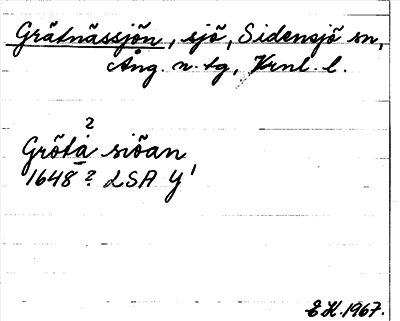 Grätnässjön, sjö, Sidensjö sn,
Ång. n. tg, Vrnl. l.
2
Gröta siöan
1648 ? LSA Y1
E H. 1967.